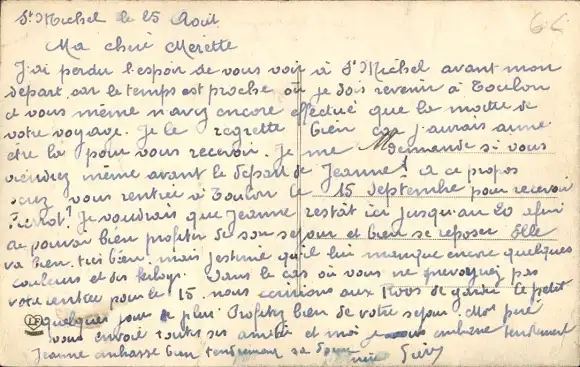 St Michel le 25 Août
64
Ma chère Merette
J'ai perdu l'espoir de vous voir à St Michel avant mon
départ car le temps est proche où je dois revenir à Toulon
et vous même n'avez encore effectué que la moitié de
votre voyage. Je le regrette bien car j'aurais aimé
être là pour vous recevoir. Je me demande si vous
viendrez même avant le départ de Jeanne! A ce propos
serez vous rentrée à Toulon le 15 septembre pour recevoir
Pierrot? Je voudrais que Jeanne restât ici jusqu'au 20 afin
de pouvoir bien profiter de son séjour et bien se reposer Elle
va bien, très bien, mais j'estime qu'il lui manque encore quelques
couleurs et des kilogs. Dans le cas où vous ne prévoyez pas
votre rentrée pour le 15 nous écririons aux de garder le petit
quelques jours de plus. Profitez bien de votre séjour. Mon père
vous envoie toutes ses amitiés et moi je vous embrasse tendrement
Jeanne embrasse bien tendrement sa